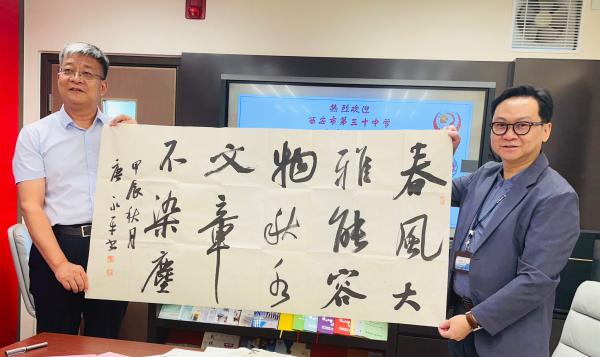 热烈欢迎
西安市第三十中学
春風大
雅能容
物秋水
文章
不染塵
甲辰秋月
唐永平书